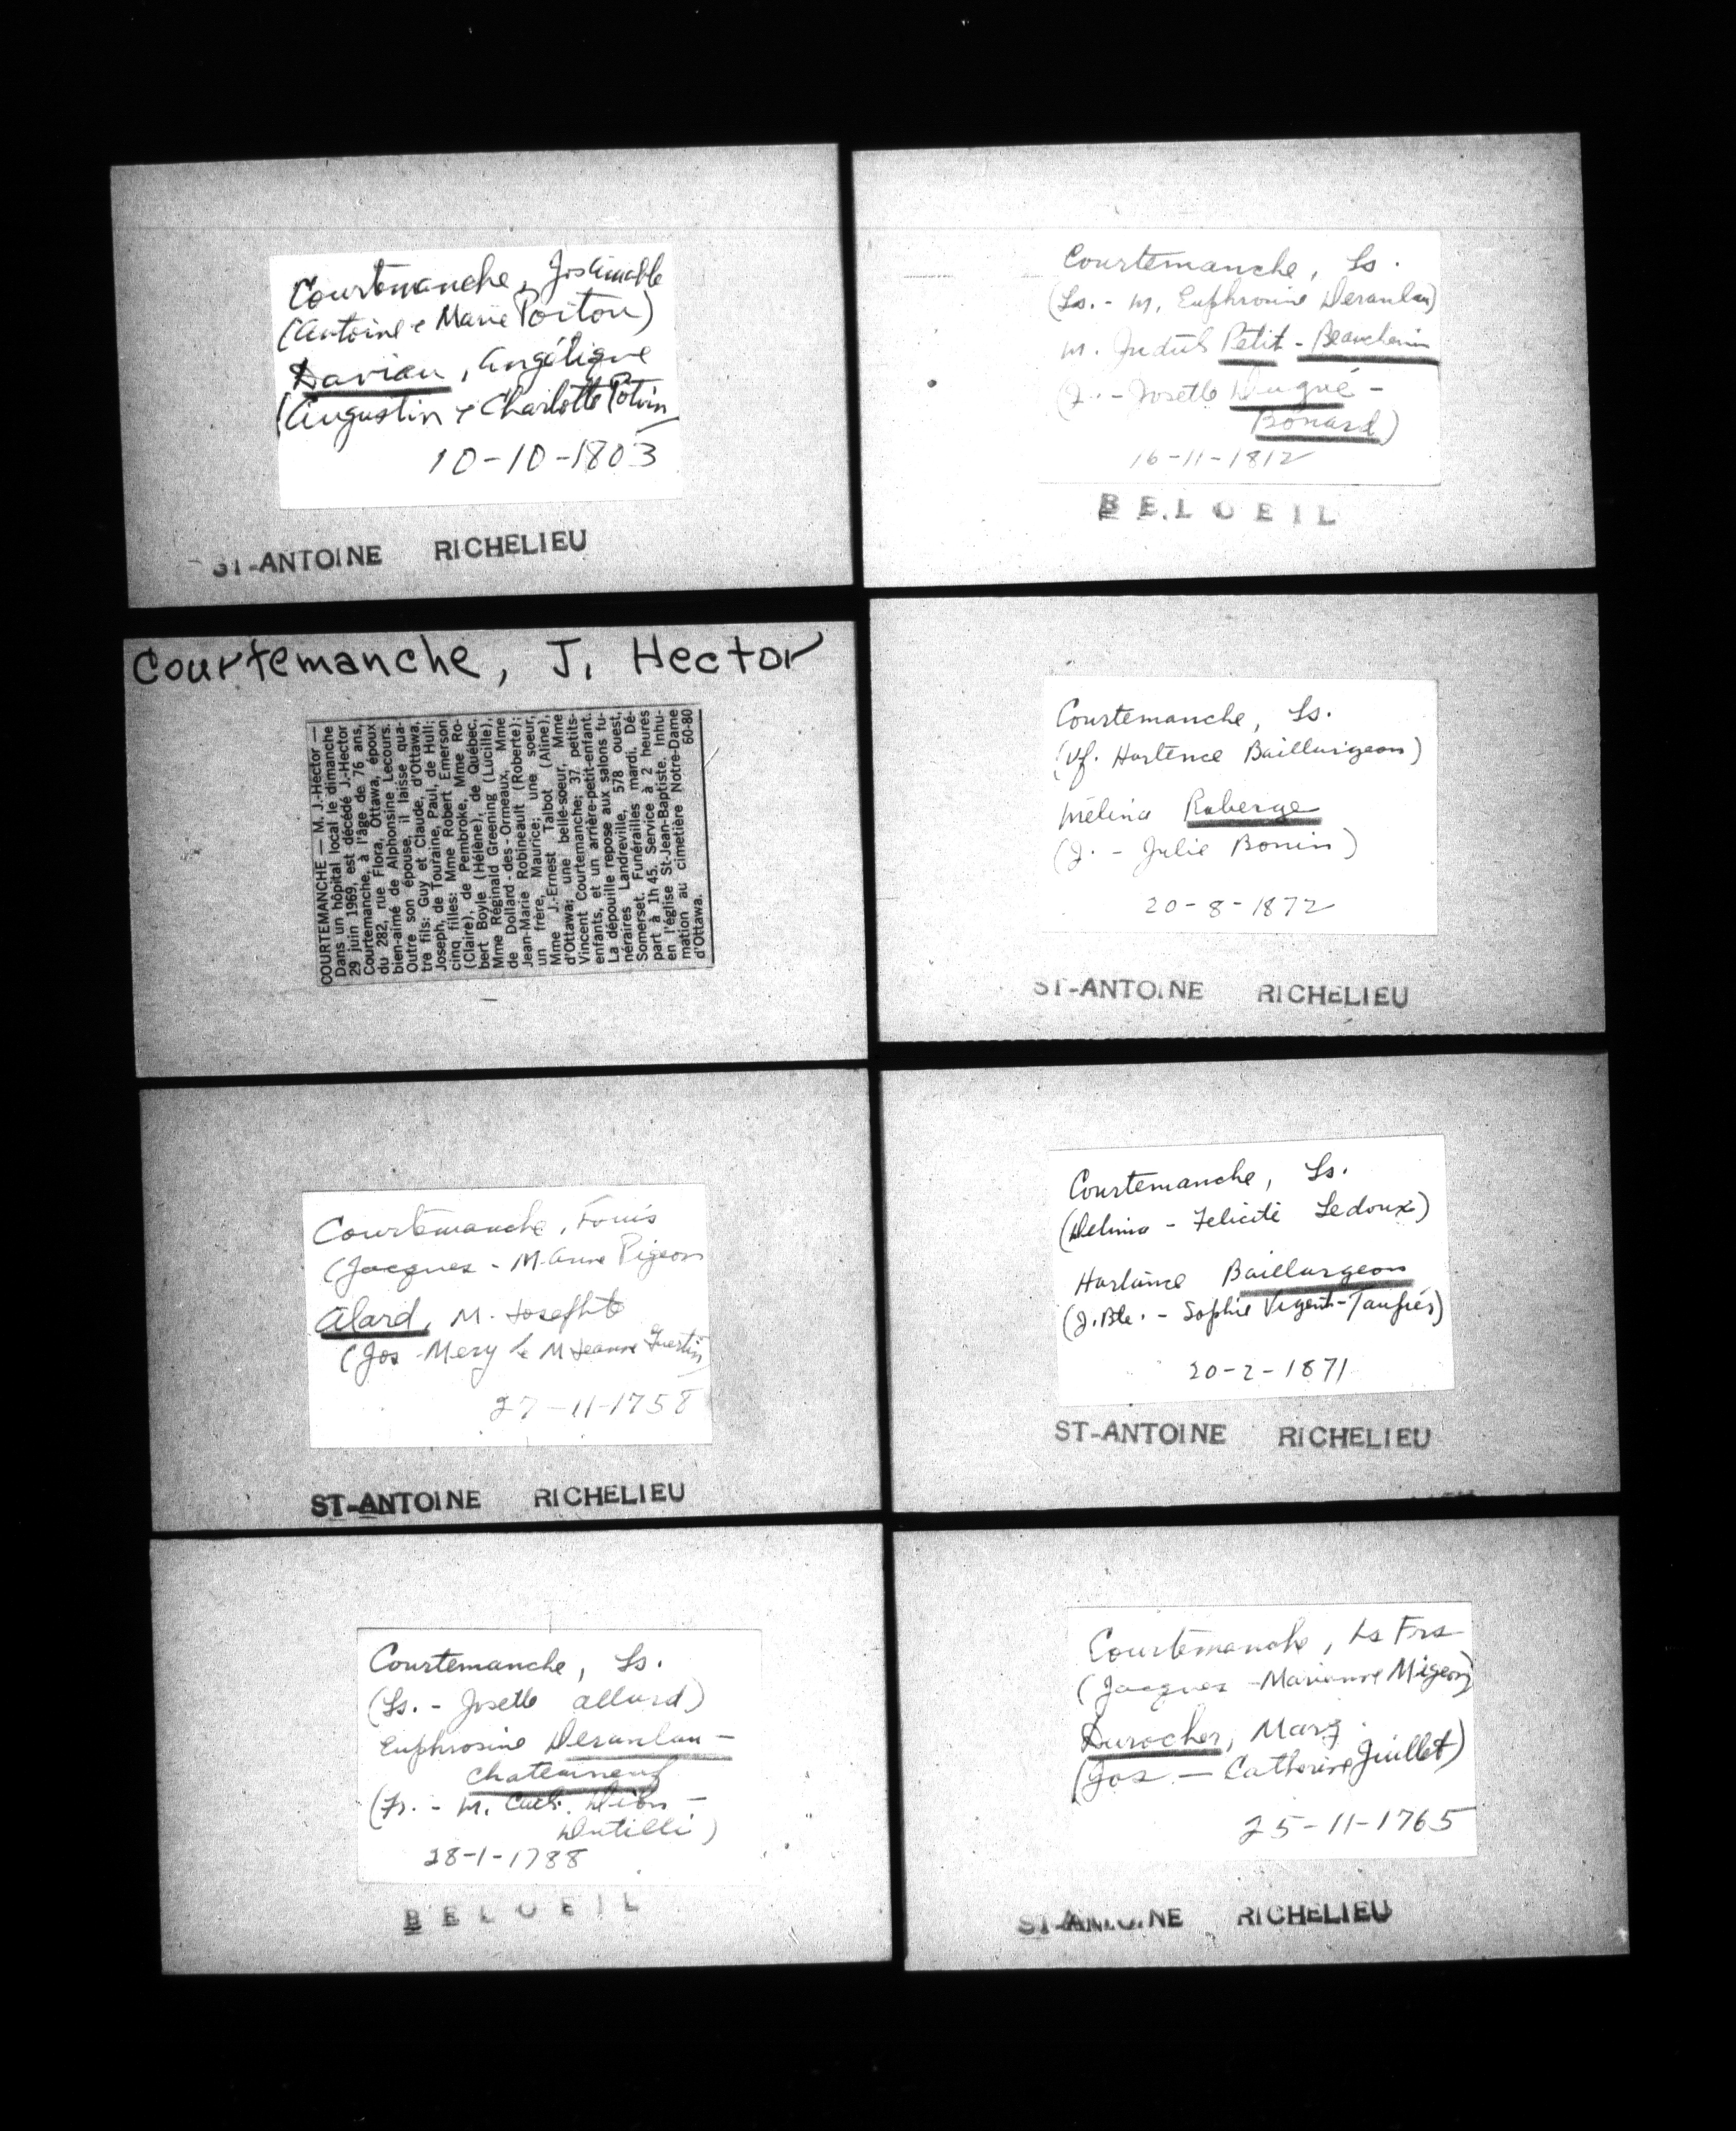 Courtemanche, Jos Aimable
(Antoine & Marie Poitou)
Davian, Angélique
(Augustin & Charlotte Potvin
10-10-1803
ST-ANTOINE RICHELIEU
Courtemanche, Ls.
(Ls. - M. Euphrosine Deranlau)
M. Judith Petit - Beauchemin
(J. - Josette Dugué -
Bonard)
16-11-1812
BELOEIL
Courtemanche, J. Hector
COURTEMANCHE — M. J.-Hector —
Dans un hôpital local le dimanche
29 juin 1969, est décédé J.-Hector
Courtemanche, à l'âge de 76 ans,
du 282, rue Flora, Ottawa, époux
bien-aimé de Alphonsine Lecours.
Outre son épouse, il laisse qua-
tre fils: Guy et Claude, d'Ottawa,
Joseph, de Touraine, Paul, de Hull;
cinq filles: Mme Robert Emerson
(Claire), de Pembroke, Mme Ro-
bert Boyle (Hélène), de Québec,
Mme Réginald Greening (Lucille),
de Dollard-des-Ormeaux, Mme
Jean-Marie Robineault (Roberte);
un frère, Maurice; une soeur,
Mme J.-Ernest Talbot (Aline),
d'Ottawa; une belle-soeur, Mme
Vincent Courtemanche; 37 petits-
enfants, et un arrière-petit-enfant.
La dépouille repose aux salons fu-
néraires Landreville, 578 ouest,
Somerset. Funérailles mardi. Dé-
part à 1h 45. Service à 2 heures
en l'église St-Jean-Baptiste. Inhu-
mation au cimetière Notre-Dame
d'Ottawa. 60-80
Courtemanche, Ls.
(Vf. Hortence Baillurigeon)
Mélina Roberge
(J. - Julie Bonin)
20-8-1872
ST-ANTOINE RICHELIEU
Courtemanche, Louis
(Jacques - M. Anne Pigeon
Alard, M. Josephte
(Jos - Mery & M Jeanne Guertin)
27-11-1758
ST-ANTOINE RICHELIEU
Courtemanche, Ls.
(Delima - Felicité Ledoux)
Hortence Baillargeon
(J. Bte. - Sophie)
20-2-1871
ST-ANTOINE RICHELIEU
Courtemanche, Ls.
(Ls. - Josette Allard)
Euphrosine Deranlau -
Chateauneuf
(Fr. - M. Cath. Dion -
Dutilli)
28-1-1788
BELOEIL
Courtemanche, Ls Frs
(Jacques - Marianne Migeon)
Durocher, Marg.
(Jos - Catherine Juillet)
25-11-1765
ST-ANTOINE RICHELIEU